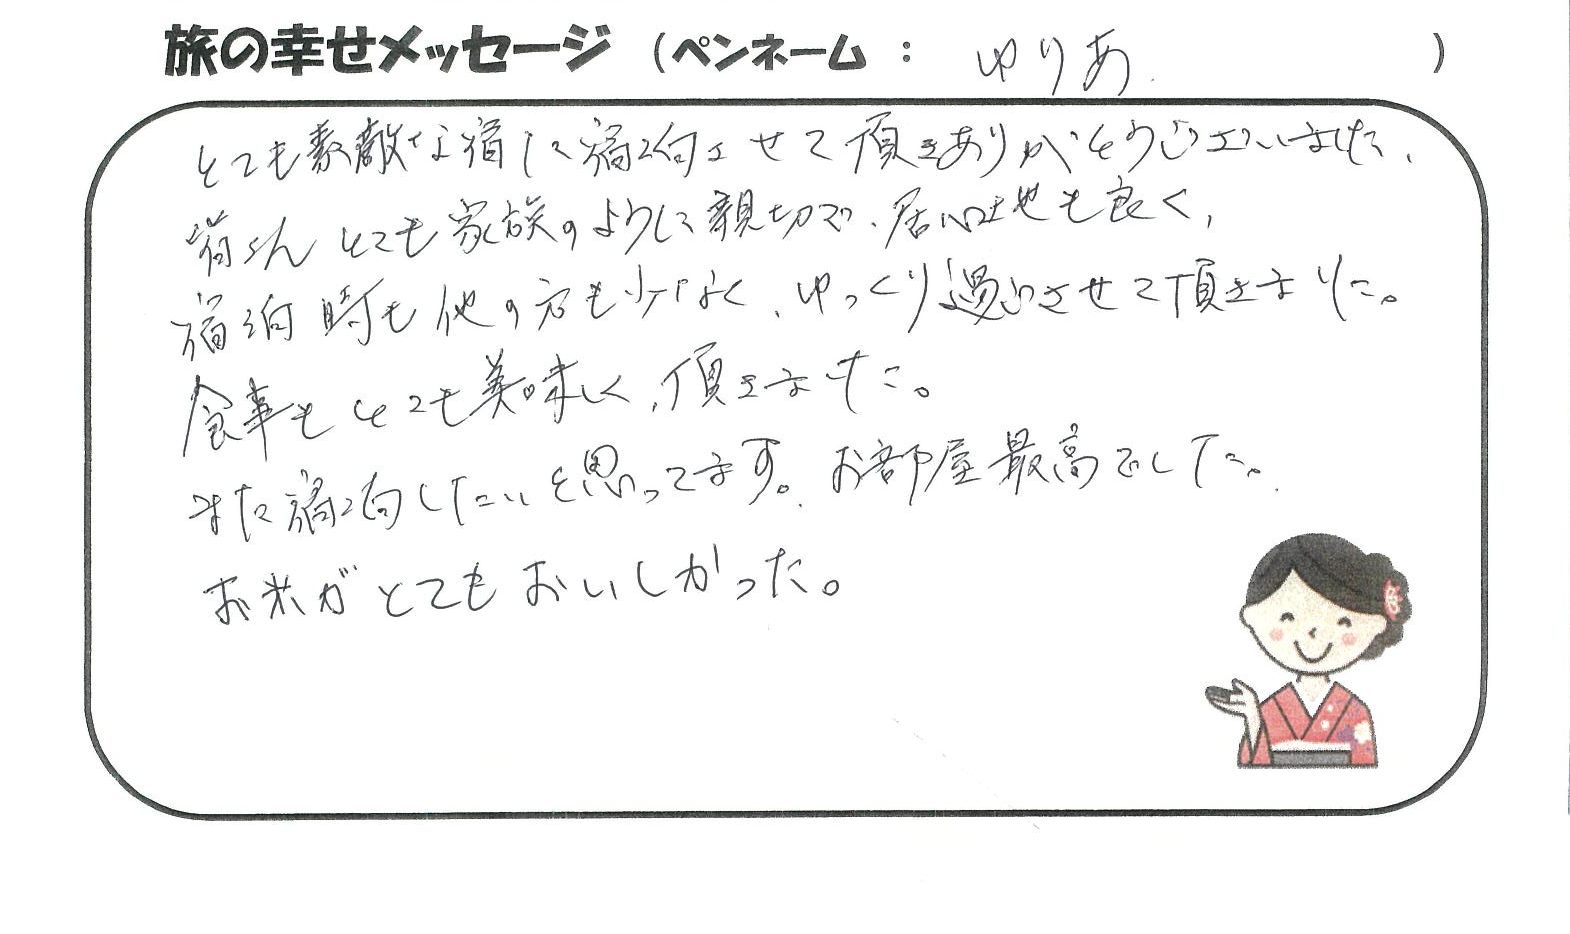 旅の幸せメッセージ (ペンネーム : ゆりあ )
とても素敵な宿に宿泊させて頂きありがとうございました、
皆さんとても家族のように親切で、居心地も良く、
宿泊時も他の方も少なく、ゆっくり過ごさせて頂きました。
食事もとても美味しく、頂きました。
また宿泊したいと思ってます。お部屋最高でした。
お米がとてもおいしかった。